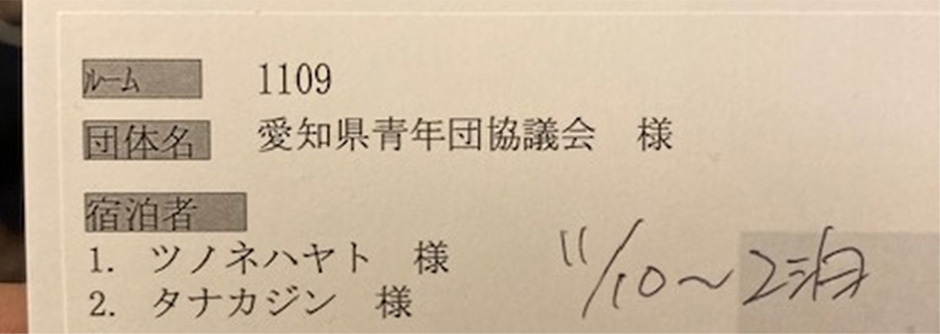 ルーム 1109
団体名 愛知県青年団協議会 様
宿泊者
1. ツノネハヤト 様
2. タナカジン 様
11/10〜2泊